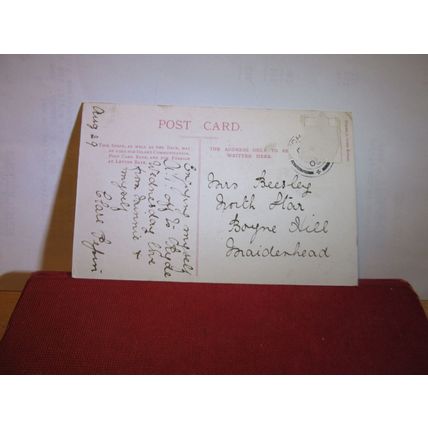 POST CARD.
THIS SPACE, AS WELL AS THE BACK, MAY
BE USED FOR INLAND COMMUNICATION,
POST CARD RATE, AND FOR FOREIGN
AT LETTER RATE.
THE ADDRESS ONLY TO BE
WRITTEN HERE.
Aug 29
Enjoying myself
off to Hyde
Wednesday love
from Minnie &
myself
Mrs Beesley
North Star
Boyne Hill
Maidenhead